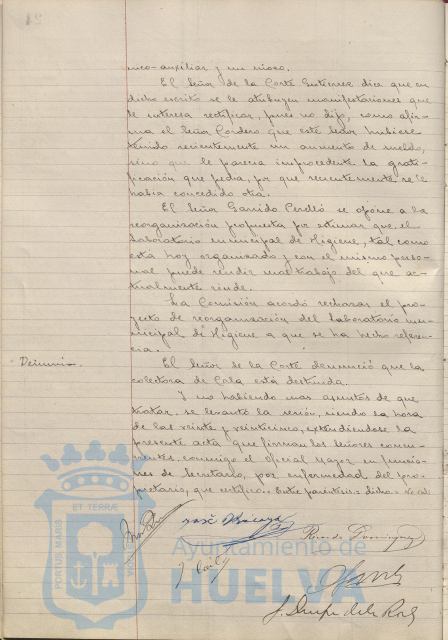 nico-auxiliar y un mozo.
El Señor de la Corte Gutierrez dice que en
dicho escrito se le atribuyen manifestaciones que
le interesa rectificar, pues no dijo, como afir-
ma el Señor Cordero que este Señor hubiere
tenido recientemente un aumento de sueldo,
sino que le parecia improcedente la grati-
ficación que pedia, por que recientemente se le
habia concedido otra.
El Señor Garrido Perelló se opone a la
reorganización propuesta por estimar que, el
Laboratorio municipal de Higiene, tal como
está hoy organizado y con el mismo perso-
nal puede rendir mas trabajo del que ac-
tualmente rinde.
La Comisión acordó rechazar el pro-
yecto de reorganización del Laboratorio mu-
nicipal de Higiene a que se ha hecho referen-
cia.
Denuncia. El Señor de la Corte denunció que la
colectora de Cala está destruida.
Y no habiendo mas asuntos de que
tratar, se levantó la sesión, siendo la hora
de las veinte y veinticinco, extendiendose la
presente acta que firman los Señores concu-
rrentes, conmigo el oficial mayor en funcio-
nes de Secretario, por enfermedad del pro-
pietario, que certifico. Entre parentesis: dicho
PORTUS MARIS ET TERRÆ
José
Ayuntamiento de
HUELVA